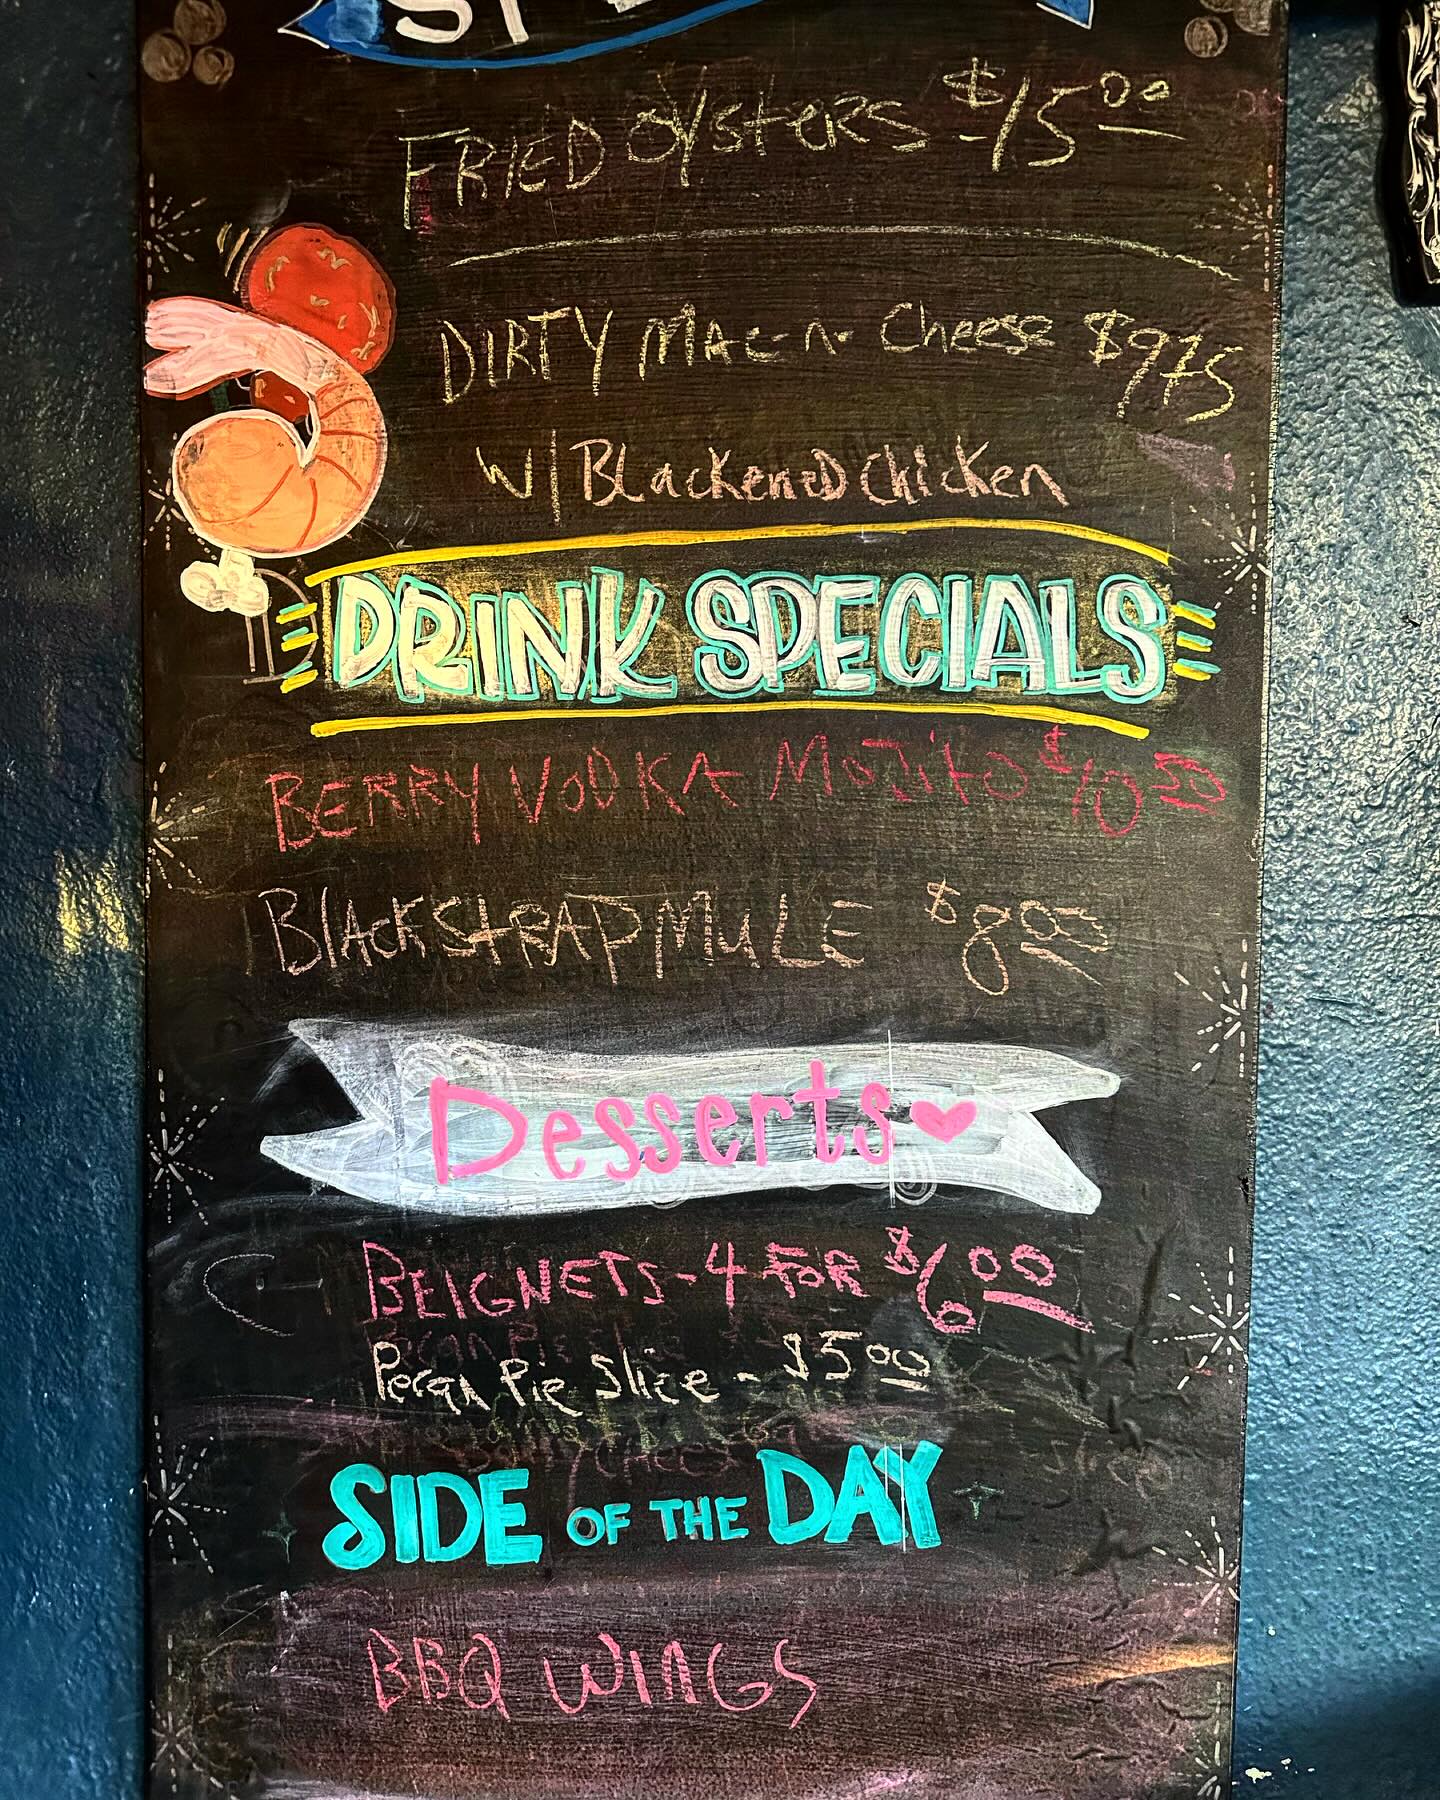 FRIED OYSTERS $15.00
DIRTY Mac-n-Cheese $9.75
W/ BLackeneD Chicken
DRINK SPECIALS
BERRY VODKA MOJitO $10.50
BlAckStRAP MuLE $8.00
Desserts
BEIGNETS-4 FOR $6.00
Pecan Pie Slice - $5.00
SIDE OF THE DAY
BBQ WINGS